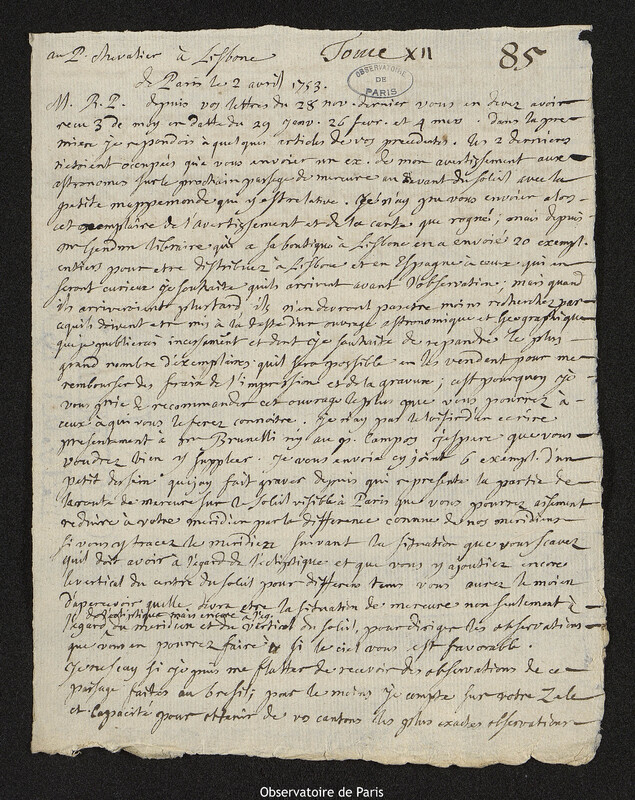 au P. chevalier à Lisbone Tome XII 85
OBSERVATOIRE
DE
PARIS
de Paris le 2 avril 1753.
M. R. P. depuis vos lettres du 28 nov. dernier vous en devez avoir
recu 3 de moy en datte du 29 janv. 26 fevr. et 4 mars. dans la pre-
miere je repondois à quelques articles de vos precedentes. les 2 dernieres
n'etoient occupées que vous envoier un ex. de mon avertissement aux
astronomes sur le prochain passage de mercure au devant du soleil avec la
petite mappemonde qui y est relative. je n'ay pu vous envoier alors
cet exemplaire de l'avertissement et de la carte que rogné; mais depuis
mr Gendron libraire qui a sa boutique à Lisbone en a envoiés 20 exempl.
entiers pour etre distribuez à Lisbone et en Espagne à ceux qui en
seront curieux je souhaite qu'ils arrivent avant l'observation; mais quand
ils arriveroient plustard ils n'en devront pas etre moins recherchez par-
cequ'ils doivent etre mis à la teste d'un ouvrage astronomique et Geographique
que je publierai incessament et dont je souhaite de repandre le plus
grand nombre d'exemplaires qu'il sera possible en les vendent pour me
rembourser des fraix de l'impression et de la gravure; c'est pourquoy je
vous prie de recommander cet ouvrage le plus que vous pourrez à
ceux à qui vous le ferez connoitre. je n'ay pas le loisir d'en ecrire
presentement à mr Brunelli ny au p. Campos j'espere que vous
voudrez bien y suppleer. je vous envoie cy joint 6 exempl. d'un
petit dessein que j'ay fait graver depuis qui represente la partie de
la route de mercure sur le soleil visible à Paris que vous pourrez aisement
reduire à votre meridien par la difference connue de nos meridiens
si vous y tracez le meridien suivant la situation que vous scavez
qu'il doit avoir à l'egard de l'ecliptique et que vous y ajoutiez encore
le vertical du centre du soleil pour differens tems vous aurez le moien
d'apercevoir quelle devra etre la situation de mercure non seulement à
l'egard de l'ecliptique mais encore à l'eg.
du meridien et du vertical du soleil, pour diriger les observations
que vous en pourrez faire si le ciel vous est favorable.
je ne scay si je puis me flatter de recevoir des observations de ce
passage faites au bresil; pour le moins je compte sur votre zele
et capacité pour obtenir de vos cantons les plus exactes observations
Observatoire de Paris